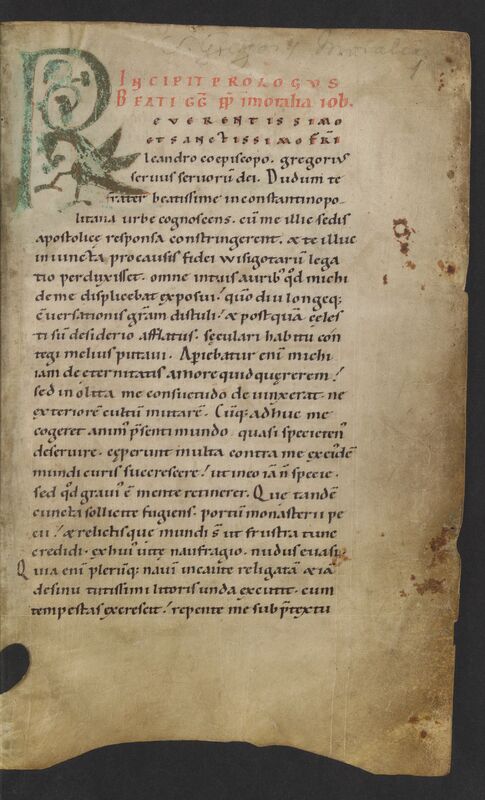 S. Gregory Moralia
1
INCIPIT PROLOGVS
BEATI GG PP in moralia iob.
REVERENTISSIMO
ET SANCTISSIMO FRI
Leandro coepiscopo. gregorius
seruus seruorū dei. Dudum te
frater beatissime in constantinopo
litana urbe cognoscens. cū me illic sedis
apostolicę responsa constringerent. & te illuc
iniuncta pro causis fidei wisigotarū lega
tio perduxisset. omne in tuis aurib; qd michi
de me displicebat exposui. quō diu longeq;
cuersationis gram distuli. & postquā cęles
ti sū desiderio afflatus. sęculari habitu con
tegi melius putaui. Apiebatur eni michi
iam de eternitatis amore quid quęrerem.
sed inolita me consuetudo deuinxerat. ne
exteriorē cultū mutarē. Cūq; adhuc me
cogeret anim psenti mundo quasi specieten
deseruire. cęperunt multa contra me ex eiusdē
mundi curis succrescere. ut in eo iā n specie.
sed qd grauius ē mente retinerer. Que tandē
cuncta sollicite fugiens. portū monasterii pe
tii. & relictis que mundi s ut frustra tunc
credidi. ex huius uitę naufragio. nudus euasi.
Quia eni plerūq; nauī incaute religatā & iā
de sinu tutissimi litoris unda excutit. cum
tempestas excrescit. repente me sub ptextu